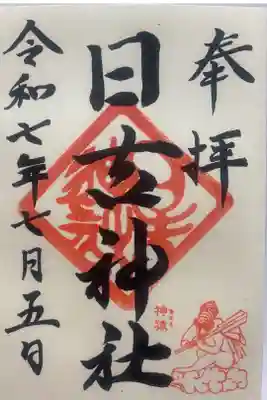 奉拝
日吉神社
神猿
令和七年七月五日